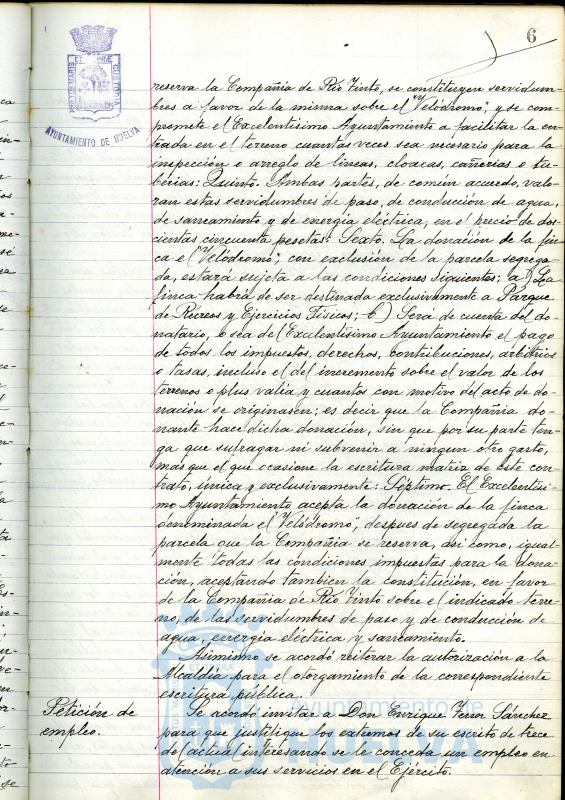 6
PORTUS MARIS ET TERRÆ CUSTODIA
AYUNTAMIENTO DE HUELVA
reserva la Compañía de Río Tinto, se constituyen servidum-
bres a favor de la misma sobre el "Velódromo", y se com-
promete el Excelentísimo Ayuntamiento a facilitar la en-
trada en el terreno cuantas veces sea necesario para la
inspección o arreglo de líneas, cloacas, cañerías o tu-
berías: Quinto. Ambas partes, de común acuerdo, valo-
ran estas servidumbres de paso, de condución de agua,
de saneamiento y de energía eléctrica, en el precio de dos-
cientas cincuenta pesetas: Sexto. La donación de la fin-
ca el "Velódromo", con exclusión de la parcela segrega-
da, estará sujeta a las condiciones siguientes: a) La
finca habrá de ser destinada exclusivamente a Parque
de Recreos y Ejercicios Físicos; b) Será de cuenta del do-
natario, o sea del Excelentísimo Ayuntamiento el pago
de todos los impuestos, derechos, contribuciones, arbitrios
o tasas, incluso el del incremento sobre el valor de los
terrenos o plus valía y cuantos con motivo del acto de do-
nación se originasen; es decir que la Compañía do-
nante hace dicha donación, sin que por su parte ten-
ga que sufragar ni subvenir a ningun otro gasto,
mas que el que ocasione la escritura matriz de este con-
trato, única y exclusivamente: Séptimo. El Excelentísi-
mo Ayuntamiento acepta la donación de la finca
denominada el "Velódromo", despues de segregada la
parcela que la Compañía se reserva, así como, igual-
mente todas las condiciones impuestas para la dona-
ción, aceptando tambien la constitución, en favor
de la Compañía de Río Tinto sobre el indicado terre-
no, de las servidumbres de paso y de conducción de
agua, energía eléctrica y saneamiento.
Asimismo se acordó reiterar la autorización a la
Alcaldía para el otorgamiento de la correspondiente
escritura pública.
Petición de
empleo.
Se acordó invitar a Don Enrique Ferror Sánchez
para que justifique los extremos de su escrito de trece
del actual interesando se le conceda un empleo en
atención a sus servicios en el Ejército.
Ayuntamiento de
HUELVA